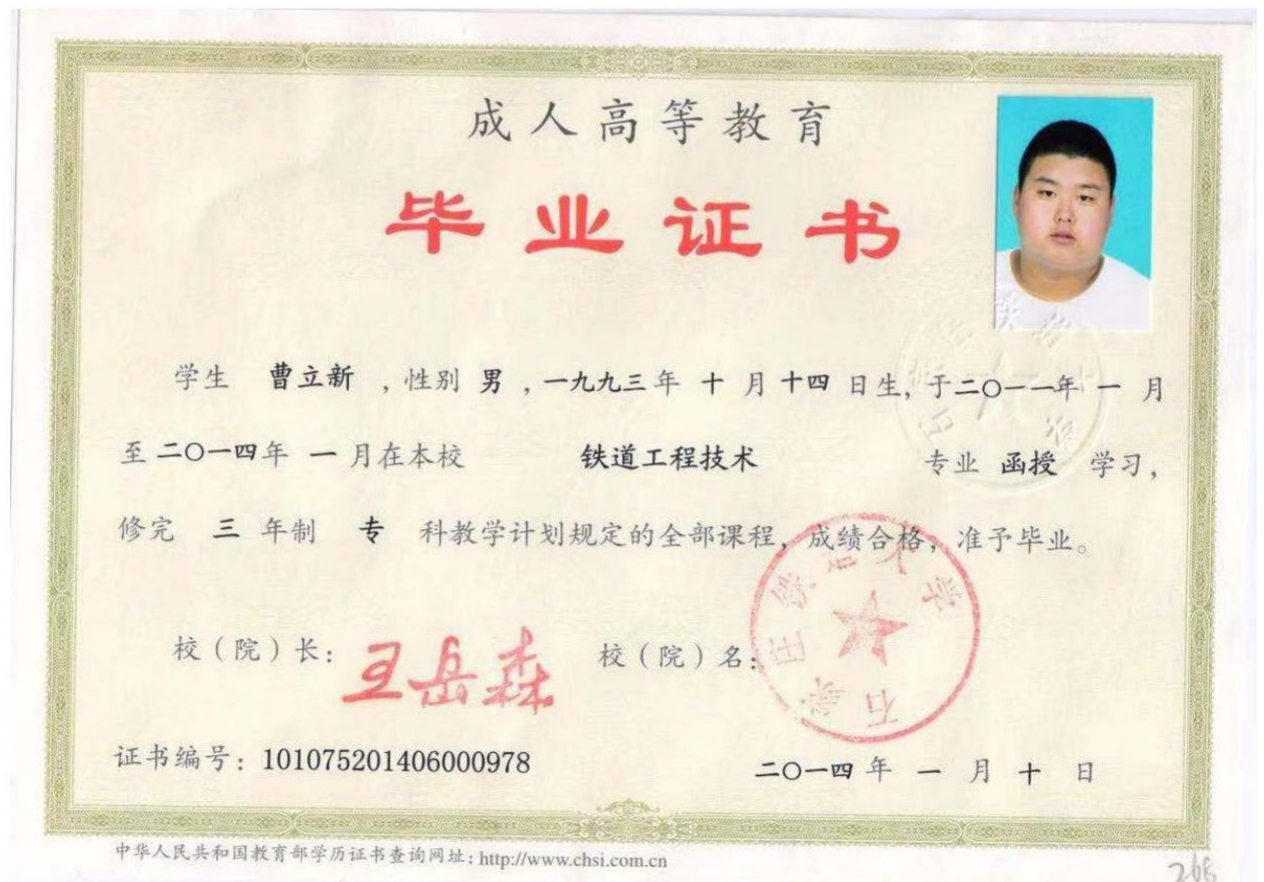 成人高等教育
毕业证书
学生 曹立新 ，性别 男 ，一九九三年 十 月 十四 日生，于二〇一一年 一 月
至 二〇一四年 一 月在本校 铁道工程技术 专业 函授 学习，
修完 三 年制 专 科教学计划规定的全部课程，成绩合格，准予毕业。
校（院）长：王岳森 校（院）名：
石家庄铁道大学
证书编号：101075201406000978
二〇一四 年 一 月 十 日
中华人民共和国教育部学历证书查询网址：http://www.chsi.com.cn
268